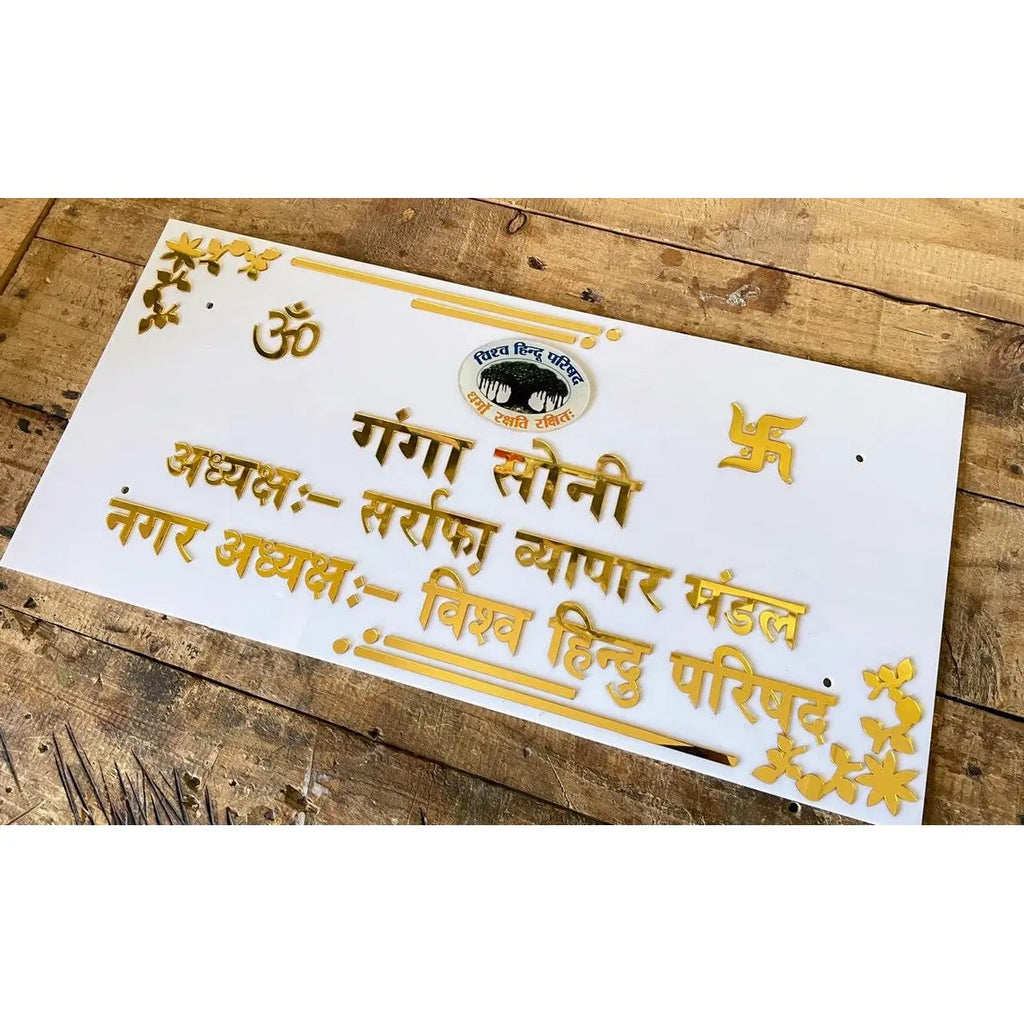 ॐ
विश्व हिन्दू परिषद
धर्मो रक्षति रक्षितः
गंगा सोनी
अध्यक्षः– सर्राफा़ व्यापार मंडल
नगर अध्यक्षः– विश्व हिन्दु परिषद्